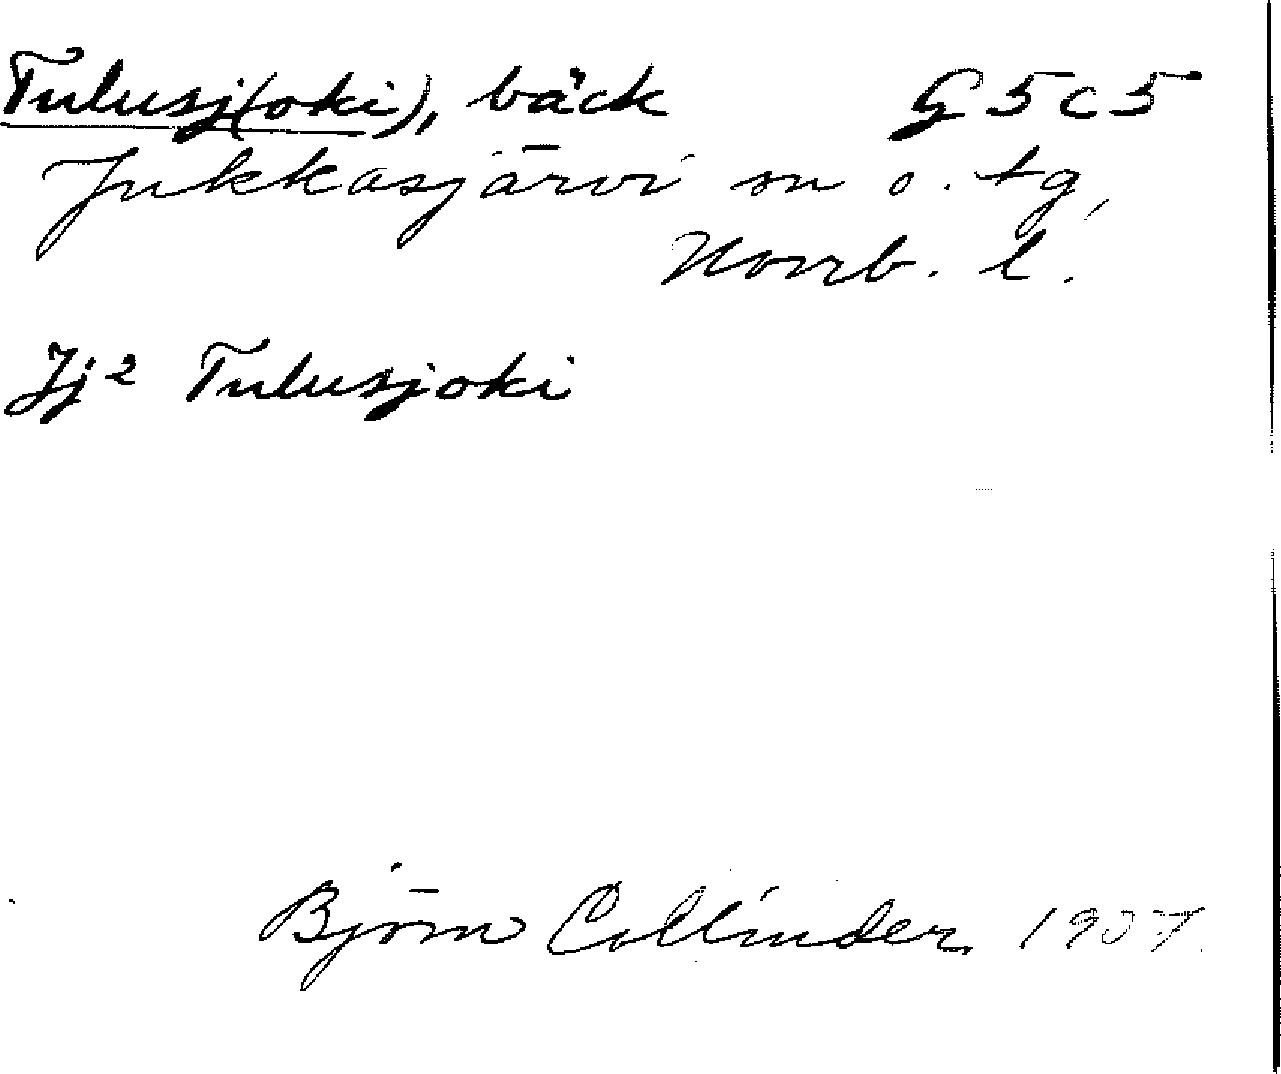 Tulusj(oki), bäck G 5 c 5
Jukkasjärvi sn o. tg,
Norrb. l.
Jj² Tulusjoki
Björn Collinder, 1937.